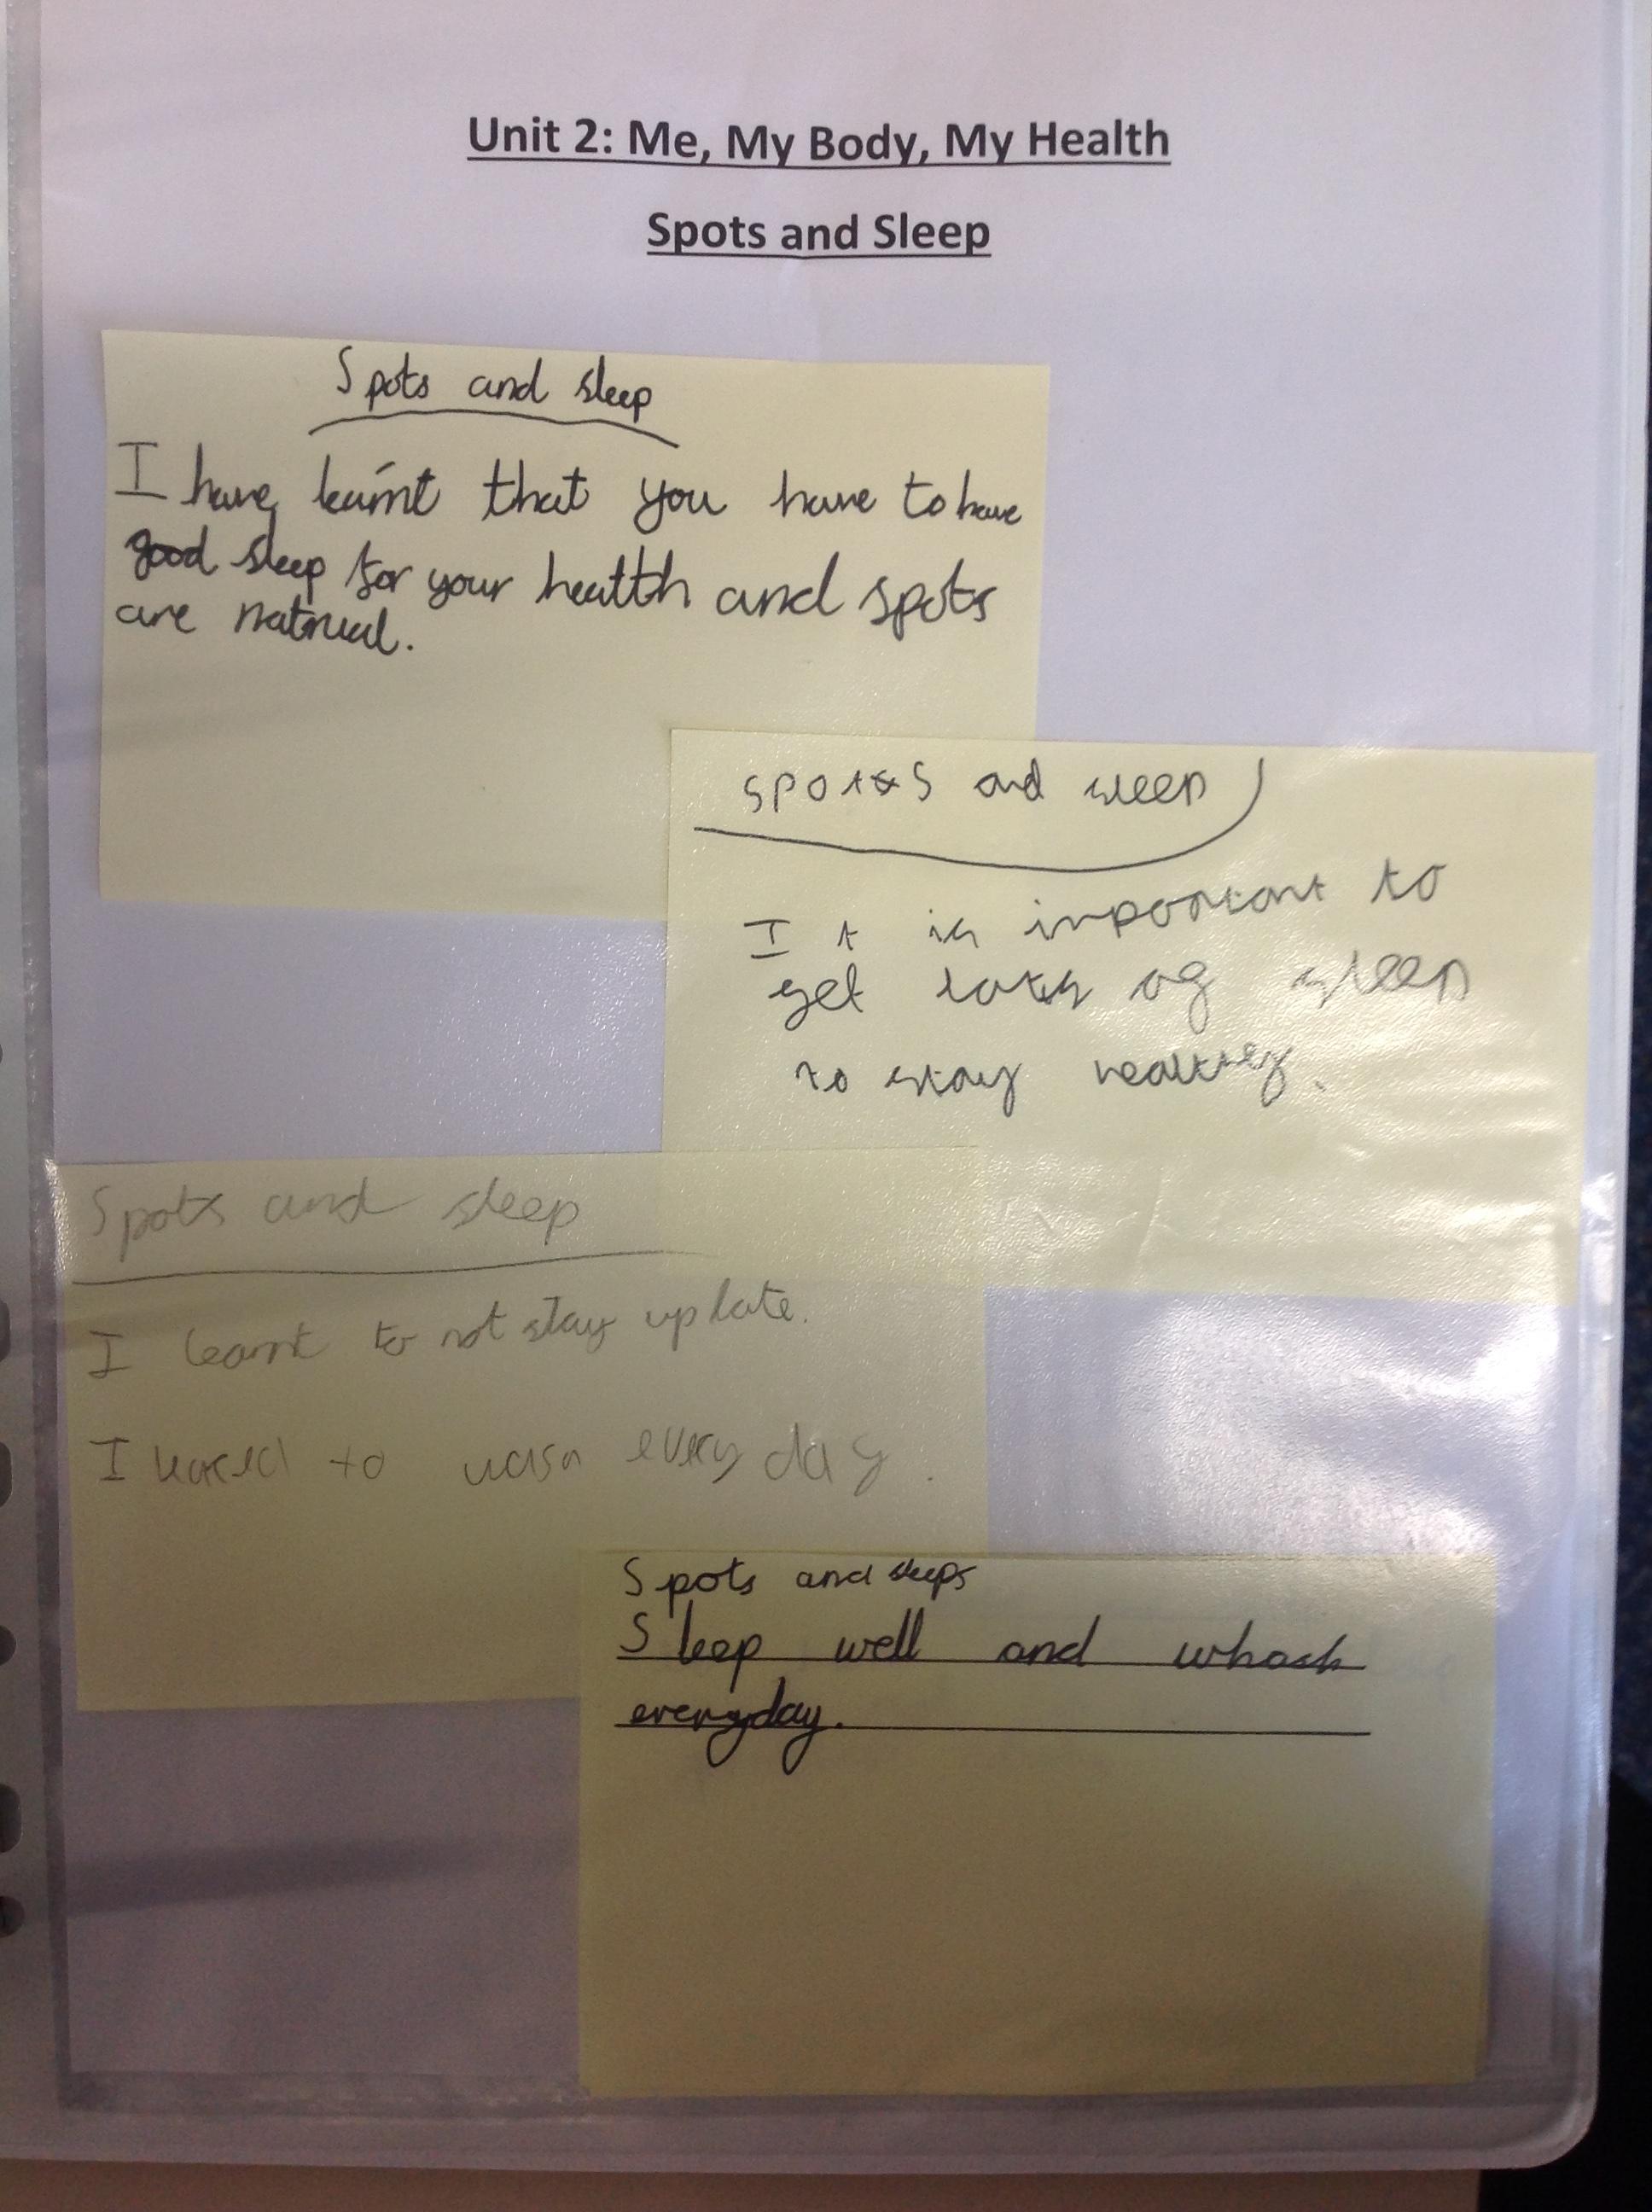 Unit 2: Me, My Body, My Health
Spots and Sleep
Spots and sleep
I have learnt that you have to have
good sleep for your health and spots
are natrual.
spots and sleep
It is inportant to
get lots of sleep
to stay healthy.
Spots and sleep
I learnt to not stay up late.
I to wash every day.
Spots and sleeps
Sleep well and whash
everyday.